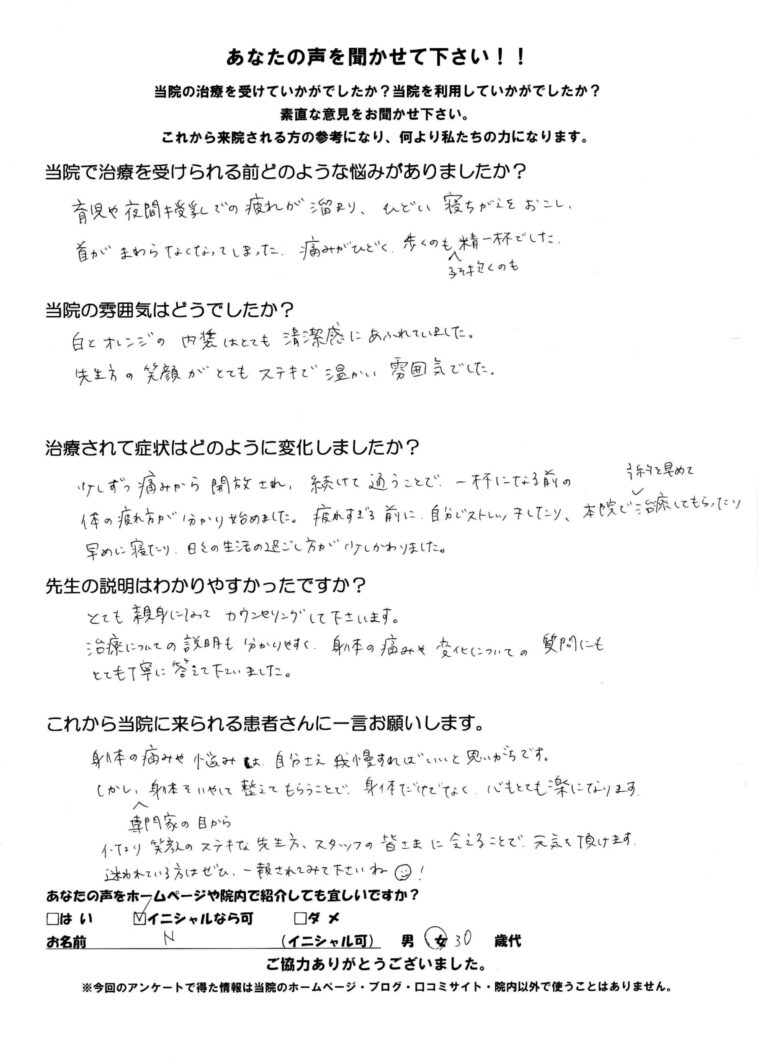 あなたの声を聞かせて下さい！！
当院の治療を受けていかがでしたか？当院を利用していかがでしたか？
素直な意見をお聞かせ下さい。
これから来院される方の参考になり、何より私たちの力になります。
当院で治療を受けられる前どのような悩みがありましたか？
育児や夜間授乳での疲れが溜まり、ひどい寝ちがえをおこし、
首がまわらなくなってしまった。痛みがひどく、歩くのも精一杯でした。
子を抱くのも
当院の雰囲気はどうでしたか？
白とオレンジの内装はとても清潔感にあふれていました。
先生方の笑顔がとてもステキで温かい雰囲気でした。
治療されて症状はどのように変化しましたか？
少しずつ痛みから開放され、続けて通うことで、一杯になる前の
予約を早めて
体の疲れ方が分かり始めました。疲れすぎる前に、自分でストレッチしたり、本院で治療してもらったり
早めに寝たり、日々の生活の過ごし方が少しかわりました。
先生の説明はわかりやすかったですか？
とても親身になって カウンセリングして下さいます。
治療についての説明も分かりやすく、身体の痛みや変化についての質問にも
とても丁寧に答えて下さいました。
これから当院に来られる患者さんに一言お願いします。
身体の痛みや悩みは、自分さえ我慢すればいいと思いがちです。
しかし、身体をいやして整えてもらうことで、身体だけでなく、心もとても楽になります
専門家の目から
なにより笑顔のステキな先生方、スタッフの皆さまに会えることで、元気を頂けます。
迷われている方はぜひ、一報されてみて下さいね！
あなたの声をホームページや院内で紹介しても宜しいですか？
□はい ☑イニシャルなら可 □ダメ
お名前 N （イニシャル可） 男 女 30 歳代
ご協力ありがとうございました。
※今回のアンケートで得た情報は当院のホームページ・ブログ・口コミサイト・院内以外で使うことはありません。